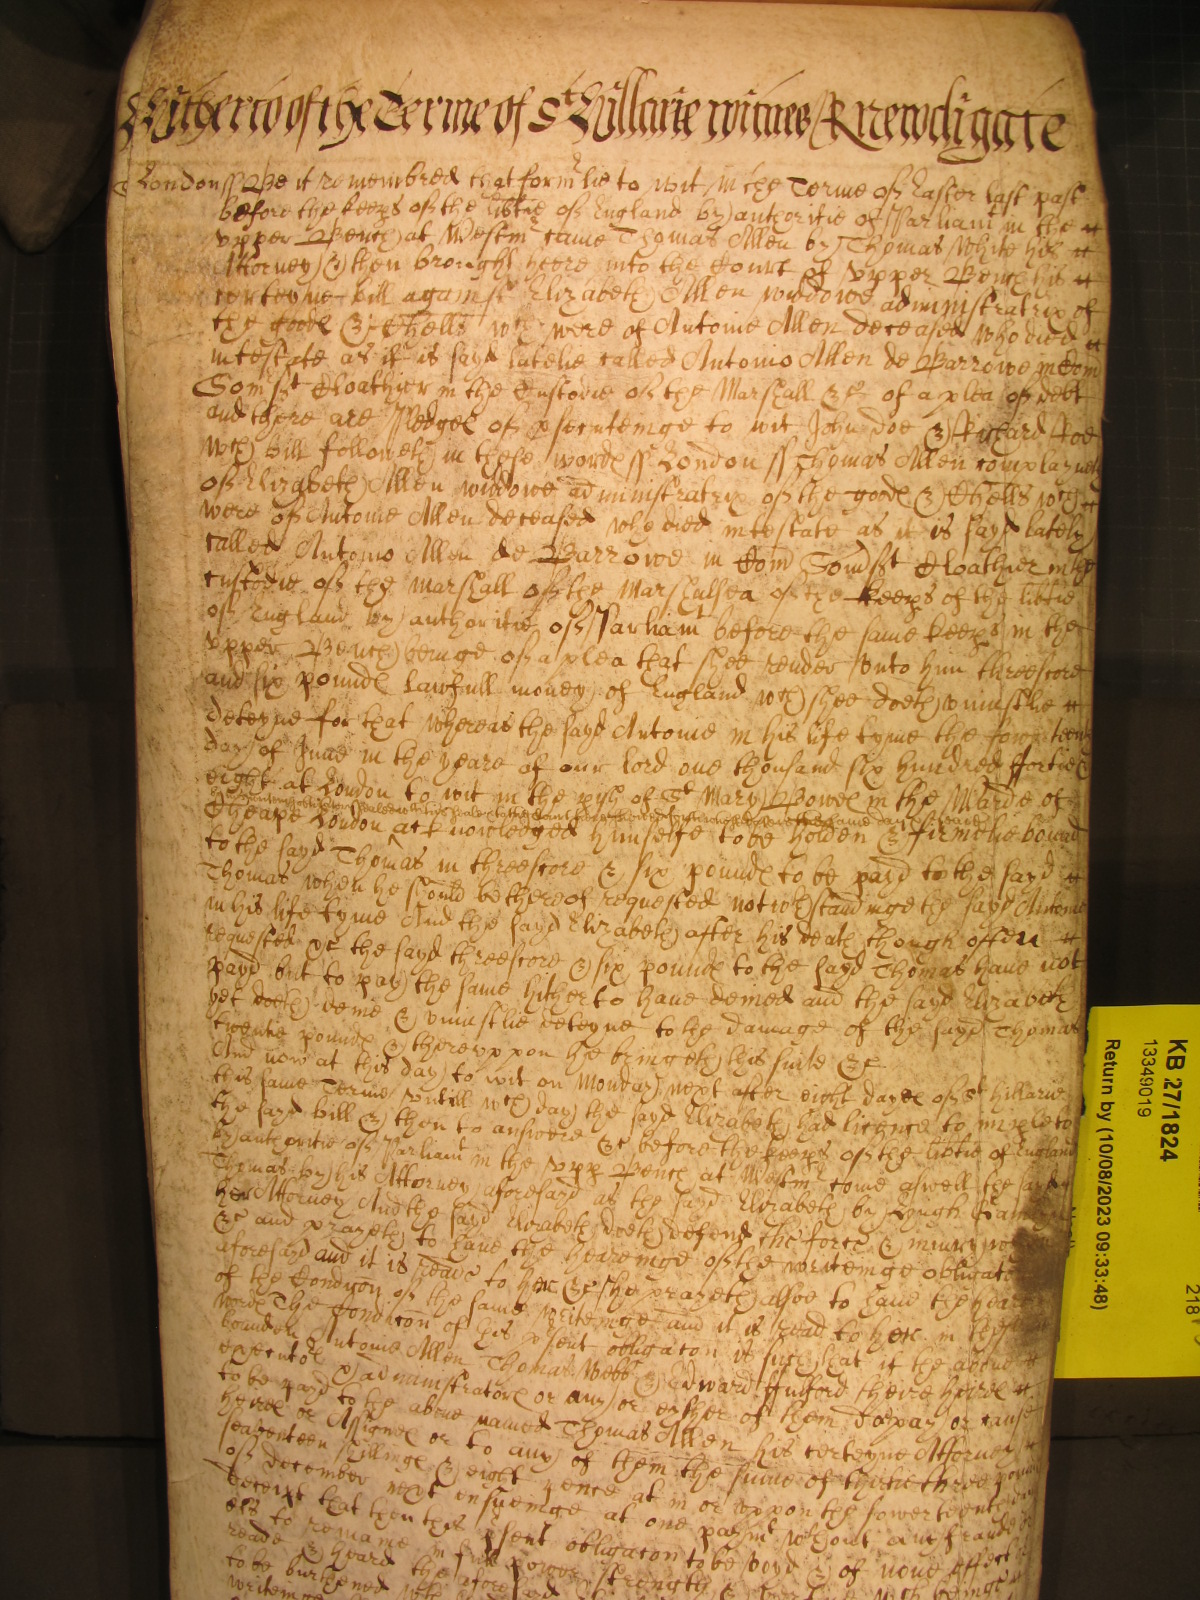 Witherto of the Terme of St Hillarie witnes R Newdigate
London ss Be it remembred that formlie to wit in the Terme of Easter last past
before the keeps of the libtie of England by authoritie of Parliamt in the
upper Bench at Westmr came Thomas Allen by Thomas White his
Attorney & then brought heere into the Court of Upper Bench his
certeyne bill against Elizabeth Allen widdowe administratrix of
the goods & Chells wch were of Antonie Allen deceased who died
intestate as it is sayd latelie called Antonio Allen de Barrowe in Com
Somst Cloathier in the Custodie of the Marshall &c of a plea of debt
and there are Pledges of psecuteinge to wit John Doe & Richard Roe
wch bill followeth in these words ss London ss Thomas Allen complayneth
of Elizabeth Allen widdowe administratrix of the goods & Chells wch
were of Antonie Allen deceased who died intestate as it is sayd lately
called Antonio Allen de Barrowe in Com Somst Cloathier in the
custodie of the Marshall of the Marshalsea of the keeps of the libtie
of England by authoritie of Parliamt before the same keeps in the
upper Bench beinge of a plea that shee render unto him threescore
and six pounds lawfull money of England wch shee doeth uniustlie
deteyne for that whereas the sayd Antonie in his life tyme the fowerteenth
day of June in the yeare of our lord one thousand six hundred ffortie
eight at London to wit in the pish of St Mary Bowe in the Warde of
Cheape London acknowledged himselfe to be holden & firmelie bound
to the sayd Thomas in threescore & six pounds to be payd to the sayd
Thomas when he should be thereof requested notwthstandinge the sayd Antonie
in his life tyme And the sayd Elizabeth after his death though often
requested &c the sayd threescore & six pounds to the sayd Thomas have not
payd but to pay the same hitherto have denied and the sayd Elizabeth
yet doeth denie & uniustlie deteyne to the damage of the sayd Thomas
twentie pounds & thereuppon he bringeth this suite &c
And now at this day to wit on Monday next after eight dayes of St Hillarie
this same Terme untill wch day the sayd Elizabeth had licence to imple to
the sayd bill & then to answere &c before the keeps of the libtie of England
by authoritie of Parliamt in the upp Bench at Westmr come aswell the sayd
Thomas by his Attorney aforesayd as the sayd Elizabeth by Hough
her Attorney And the sayd Elizabeth doeth defend the force & iniury
&c and prayeth to have the heareinge of the writeinge obligate
aforesayd and it is read to her &c she prayeth alsoe to have the hear
of the Condicon of the same writeinge and it is read to her in these
words The Condicon of this psent obligacon is such that if the above
bounden Antonie Allen Thomas Webb & Edward ffulford theire heires
executors administrators or any or eyther of them do pay or cause
to be payd to the above named Thomas Allen his certeyne Attorney
heires or Assignes or to any of them the sume of thirtie three pounds
seaventeen shillings & eight pence at in or uppon the fowerteenth day
of December next ensueinge at one paymt wthout any fraude
deceipt that then this psent obligacon to be voyd & of none effect
els to remaine in full power strength &
reade & heard the aforesayd
to be burthened
writeinge
KB 27/1824
13349019
Return by (10/08/2023 09:33:48)